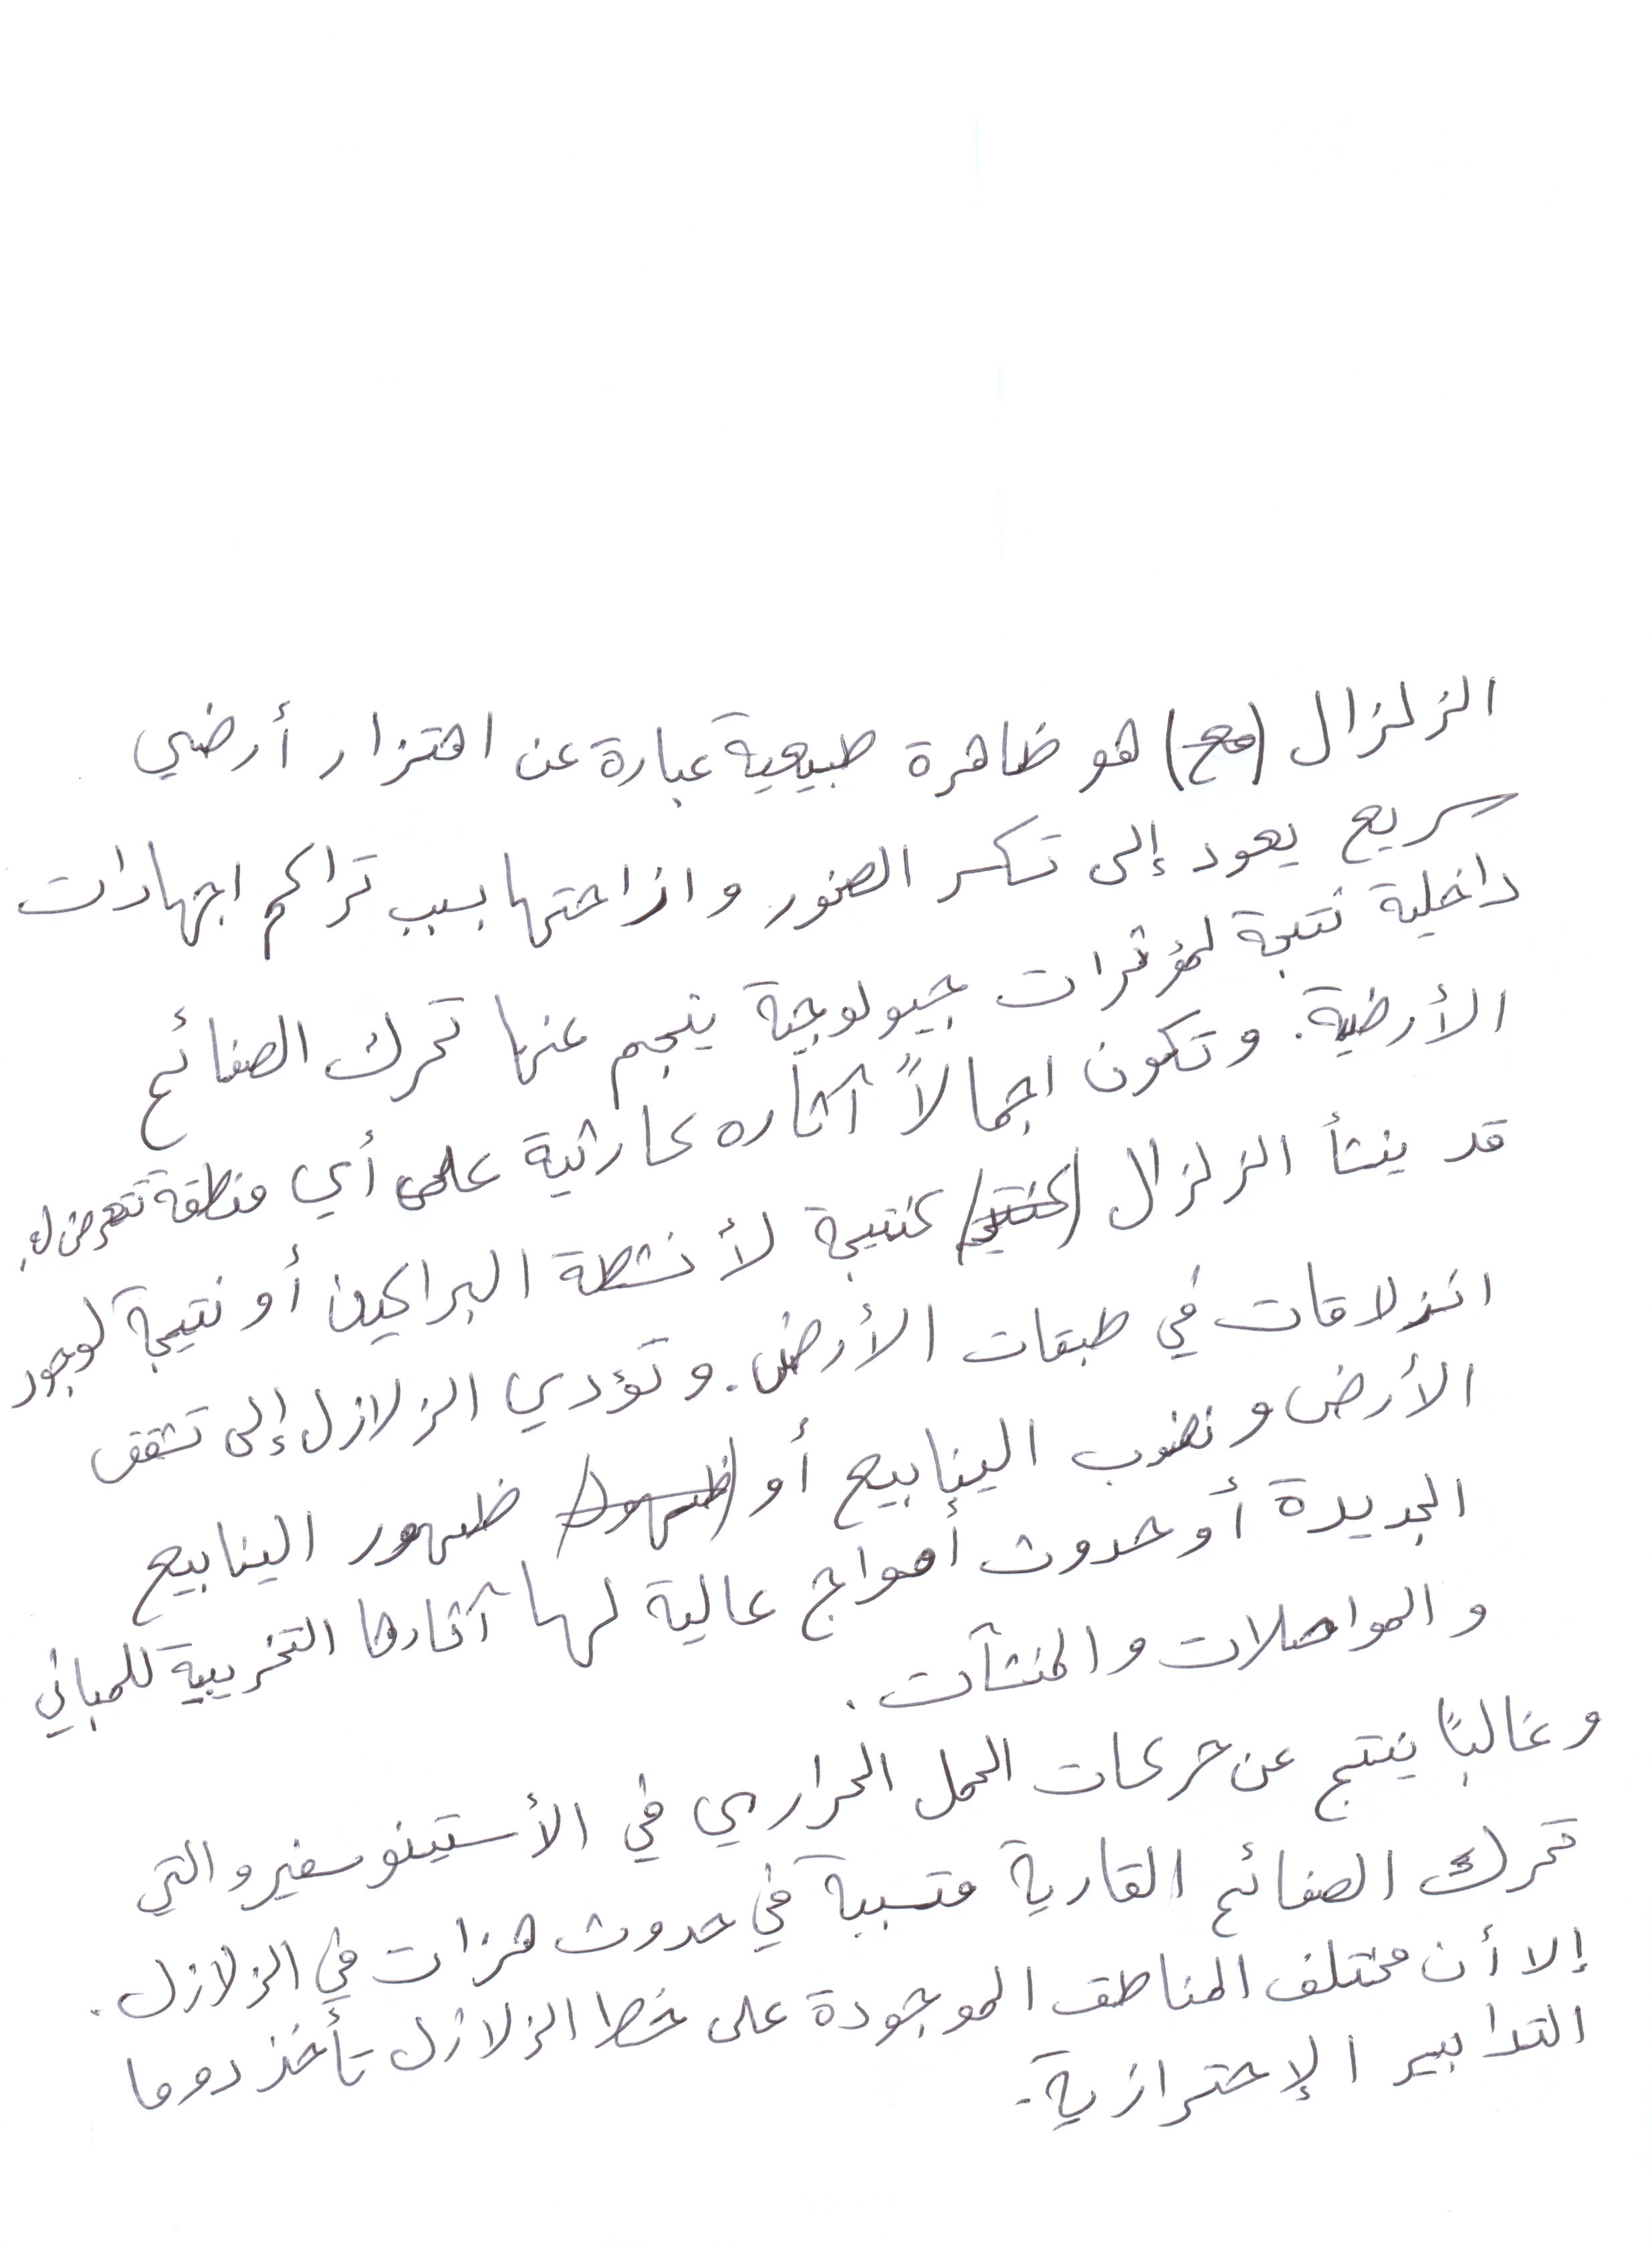 الزلزال (مع) هو ظاهرة طبيعية عبارة عن اهتزار أرضي
سريع يعود إلى تكسر الصخور وازاحتها بسبب تراكم اجهادات
داخلية نتيجة لمؤثرات جيولوجية ينجم عنها تحرك الصفائح
الأرضية. وتكون اجمالاً آثاره كارثية على أي منطقة تتعرض له.
قد ينشأ الزلزال (كنتيج) كنتيجة لأنشطة البراكين أو نتيجة لوجود
انزلاقات في طبقات الأرض. وتؤدي الزلازل إلى تشقق
الأرض ونضوب الينابيع أو (ظهور) ظهور الينابيع
الجديدة أو حدوث أمواج عالية لها آثارها التخريبية للمباني
والمواصلات والمنشآت.
وغالبًا ينتج عن حركات الحمل الحراري في الأستينوسفير والتي
تحرك الصفائح القارية متسببة في حدوث هزات في الزلازل.
إلا أن مختلف المناطق الموجودة على خط الزلازل تأخذ دوما
التدابير الإحترازية.